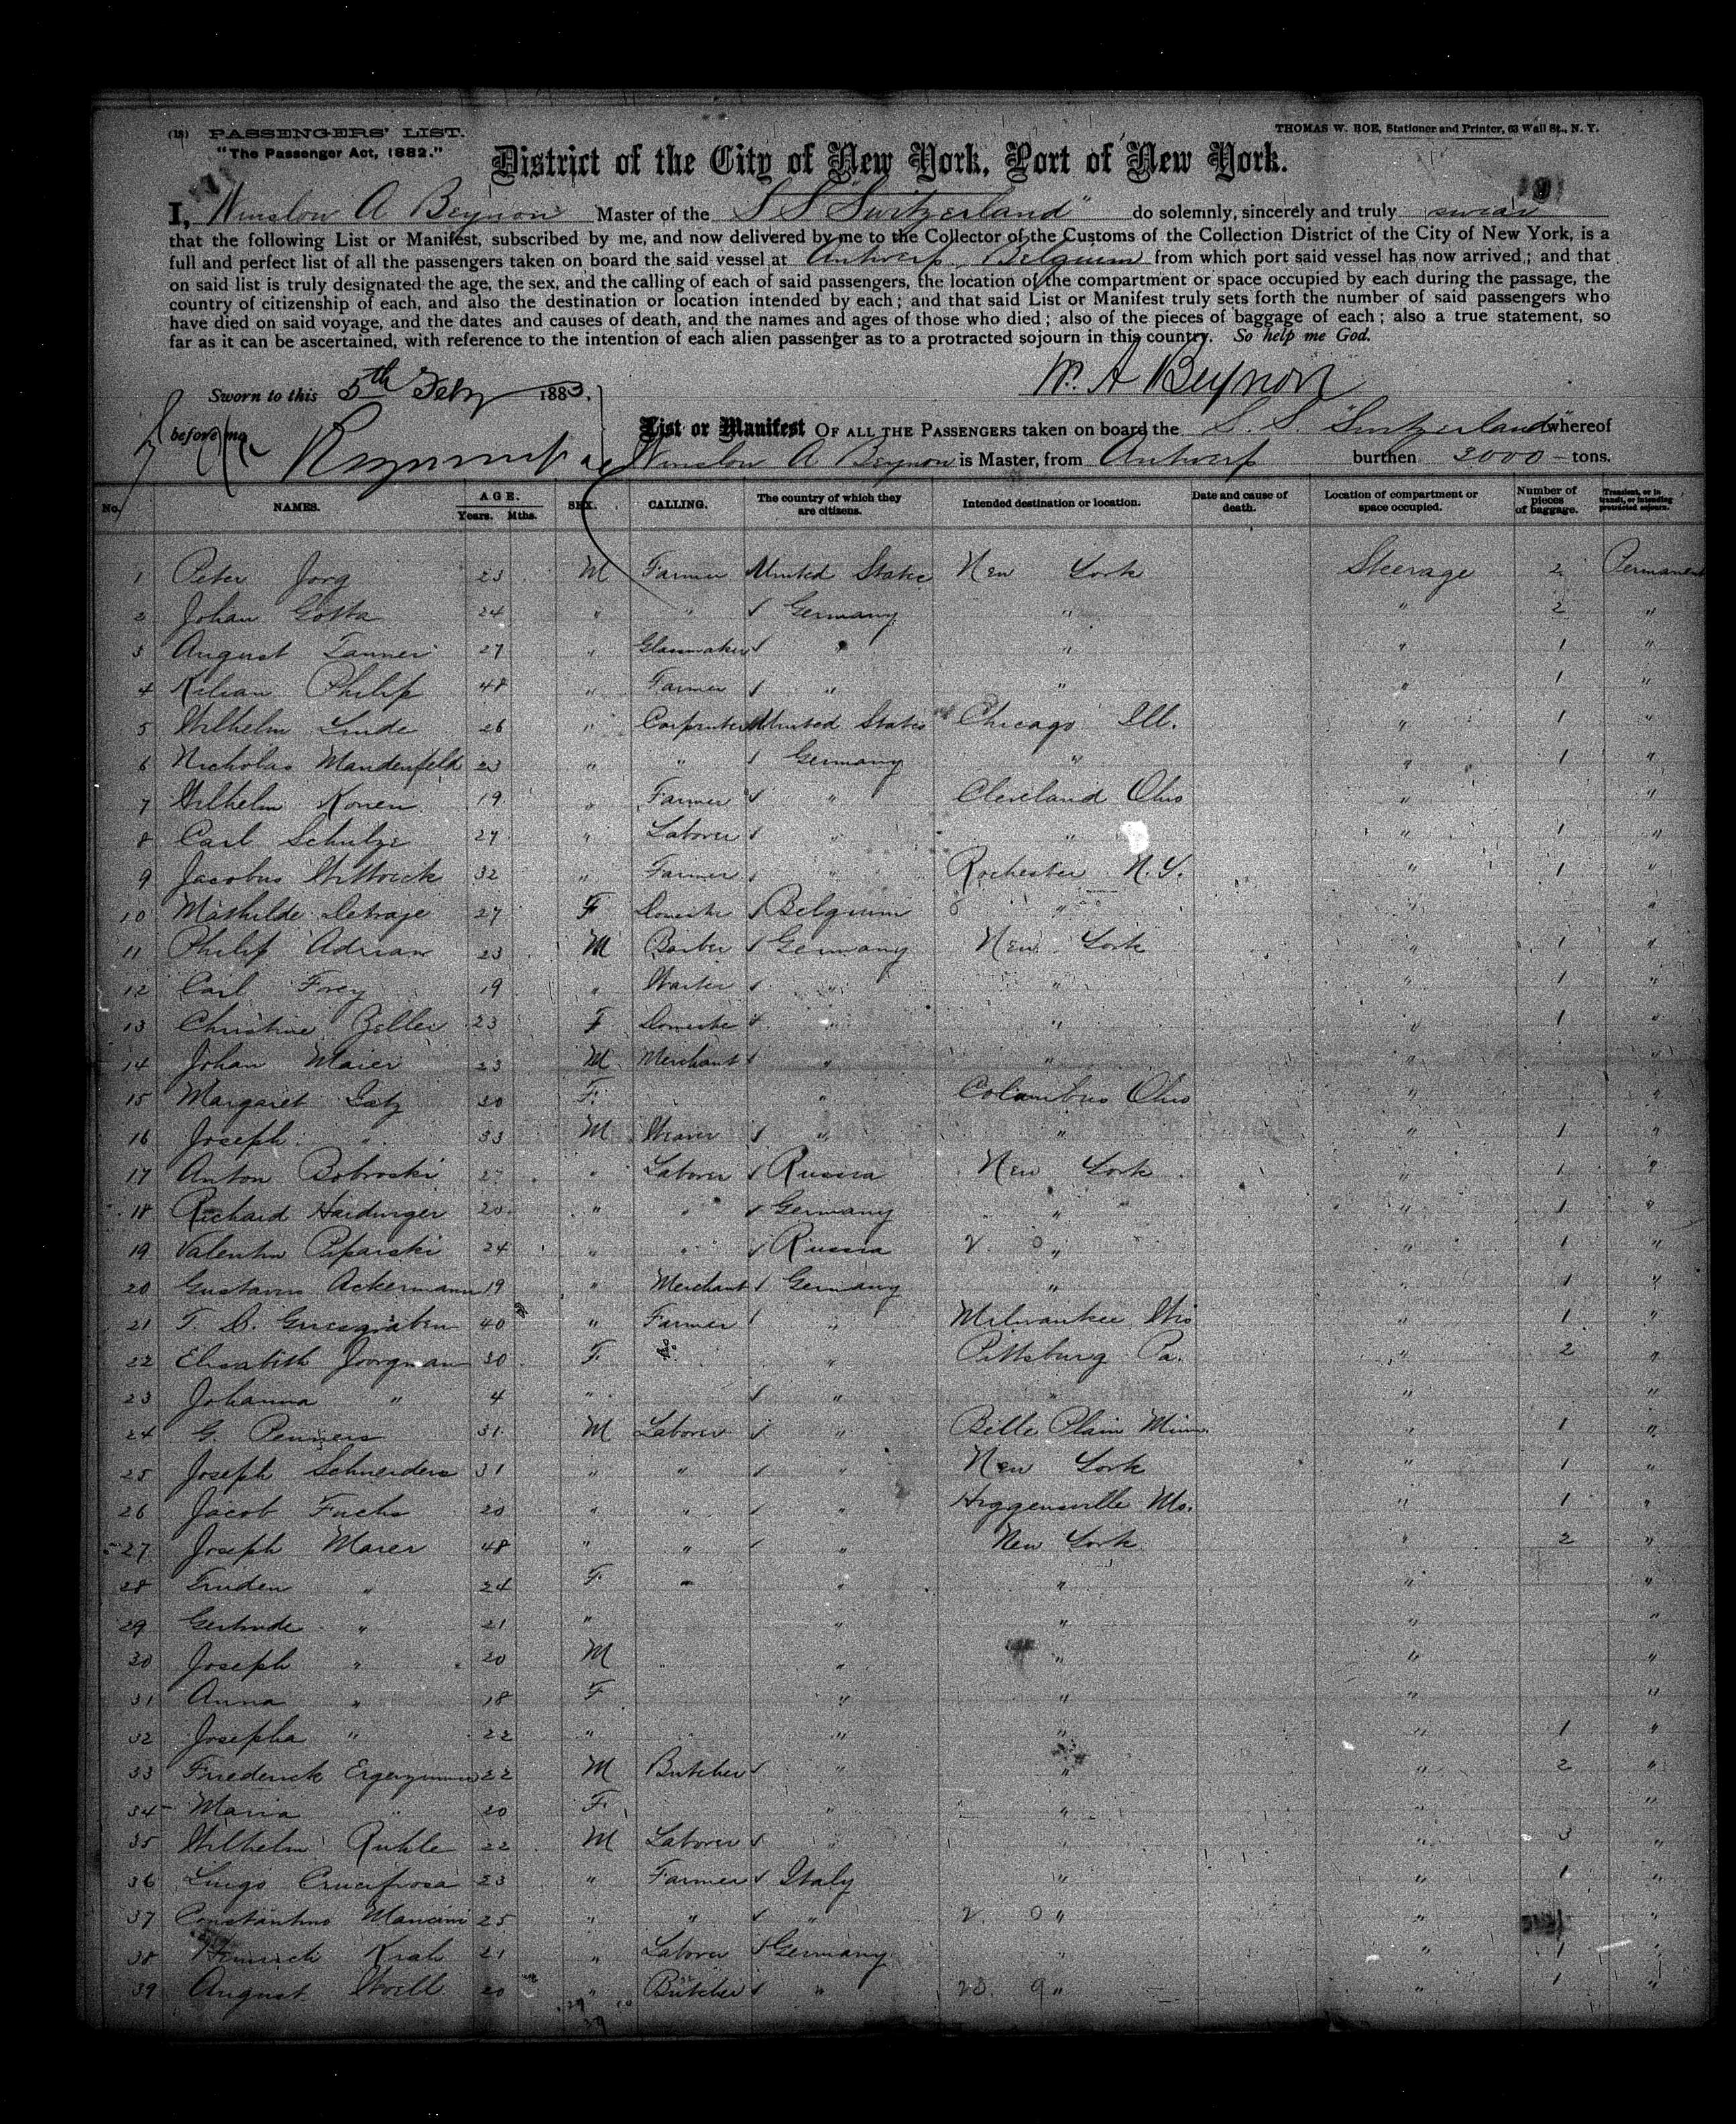 (18) PASSENGERS' LIST.
THOMAS W. ROE, Stationer and Printer, 63 Wall St., N. Y.
"The Passenger Act, 1882."
District of the City of New York, Port of New York.
I, Winslow A Beynon Master of the S S Switzerland" do solemnly, sincerely and truly swear
that the following List or Manifest, subscribed by me, and now delivered by me to the Collector of the Customs of the Collection District of the City of New York, is a
full and perfect list of all the passengers taken on board the said vessel at Antwerp Belgium from which port said vessel has now arrived; and that
on said list is truly designated the age, the sex, and the calling of each of said passengers, the location of the compartment or space occupied by each during the passage, the
country of citizenship of each, and also the destination or location intended by each; and that said List or Manifest truly sets forth the number of said passengers who
have died on said voyage, and the dates and causes of death, and the names and ages of those who died; also of the pieces of baggage of each; also a true statement, so
far as it can be ascertained, with reference to the intention of each alien passenger as to a protracted sojourn in this country. So help me God.
W. A Beynon
Sworn to this 5th Feby 1883.
before me
List or Manifest OF ALL THE PASSENGERS taken on board the S. S. "Switzerland" whereof
Winslow A Beynon is Master, from Antwerp burthen 3000 tons.
No. NAMES. AGE. Years. Mths. SEX. CALLING. The country of which they are citizens. Intended destination or location. Date and cause of death. Location of compartment or space occupied. Number of pieces of baggage. Transient, or in transit, or intending protracted sojourn.
1 Peter Jorg 23 M Farmer United States New York Steerage 2 Permanent
2 Johan Gotta 24 " " Germany " " 2 "
3 August Tanner 27 " Glassmaker " " " 1 "
4 Kilian Philip 48 " Farmer " " " 1 "
5 Wilhelm Linde 26 " Carpenter United States Chicago Ill. " 1 "
6 Nicholas Mandenfeld 23 " " Germany " " 1 "
7 Wilhelm Konen 19 " Farmer " Cleveland Ohio " "
8 Carl Schulze 27 " Laborer " " " 1 "
9 Jacobus 32 " Farmer " Rochester N.Y. " 1 "
10 Mathilde 27 F Domestic Belgium " " "
11 Philip Adrian 23 M Barber Germany New York " 1 "
12 Carl Frey 19 " Waiter " " " 1 "
13 Christine Zeller 23 F Domestic " " " 1 "
14 Johan Maier 23 M Merchant " " " "
15 Margaret 30 F. " Columbus Ohio " "
16 Joseph " 33 M Weaver " " " 1 "
17 Anton Bobroski 27 " Laborer Russia New York " 1 "
18 Richard Haidinger 20 " " Germany " " 1 "
19 Valentin Piparski 24 " " Russia " " 1 "
20 Gustavus Ackermann 19 " Merchant Germany " " 1 "
21 T. D. 40 " Farmer " Milwaukee Wis " 1 "
22 Elisabeth Joorgman 30 F. " Pittsburg Pa. " 2 "
23 Johanna " 4 " " " " "
24 G. Penners 31 M Laborer " Belle Plain Minn. " 1 "
25 Joseph Schneiders 31 " " " New York " 1 "
26 Jacob Fuchs 20 " " " Higgensville Mo. " 1 "
27 Joseph Maier 48 " " " New York " 2 "
28 Truden " 24 F " " " "
29 Gertrude " 21 " " " " "
30 Joseph " 20 M " " " "
31 Anna " 18 F " " " "
32 Josepha " 22 " " " " 1 "
33 Friederick 22 M Butcher " " " 2 "
34 Maria " 20 F " " " "
35 Wilhelm Ruhle 22 M Laborer " " " 3 "
36 Luigo 23 " Farmer Italy " " 1 "
37 Constantino Mancini 25 " " " " " "
38 Heinrich Krah 21 " Laborer Germany " " 1 "
39 August Woell 20 " Butcher " " " 1 "